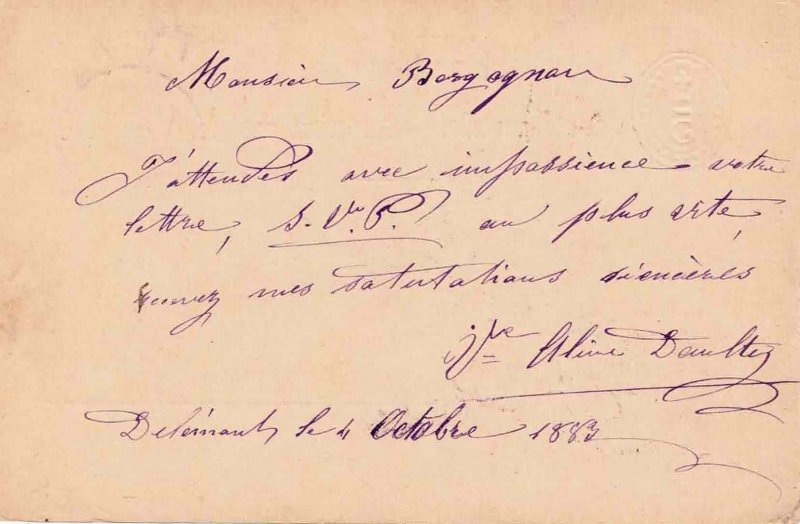 Monsieur Borgognon
J'attendes avec impassience votre
lettre, S. V. P. au plus vite,
mes salutations siencères
Aline
Delémont, le 4 Octobre 1883